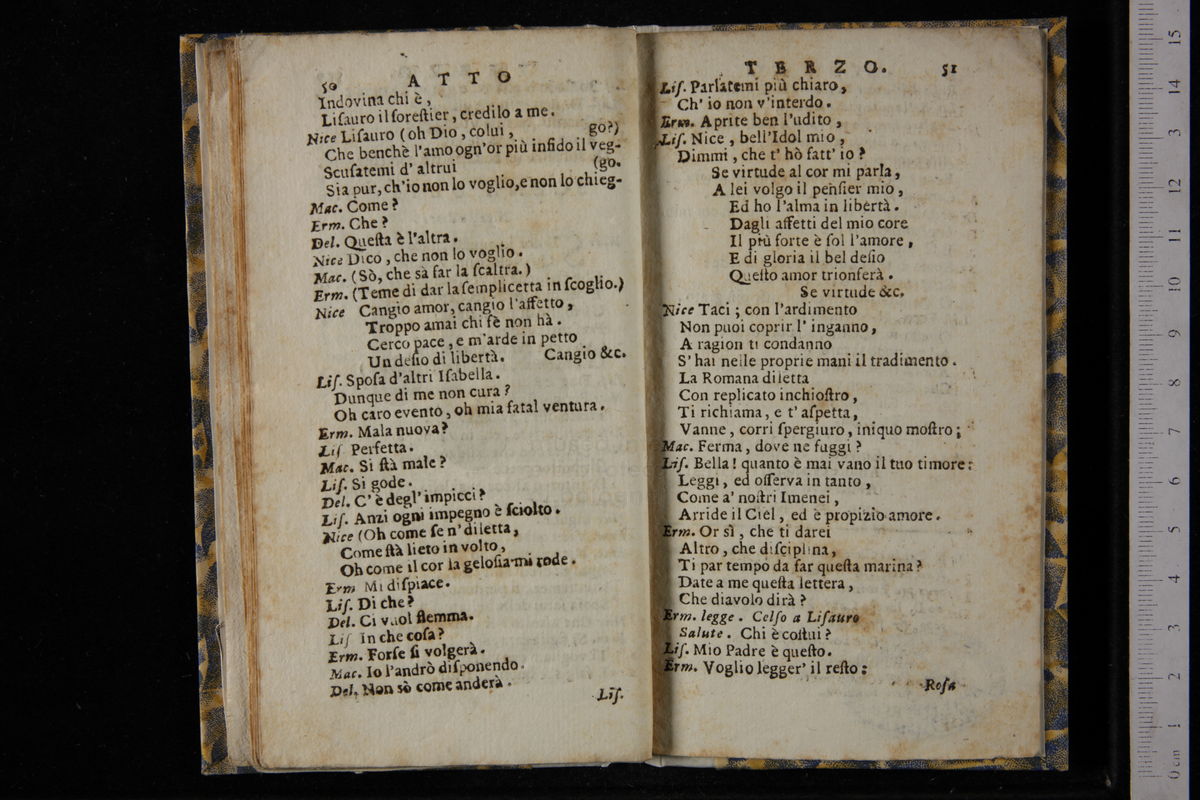 50 ATTO
Indovina chi è,
Liſauro il foreſtier, credilo a me.
Nice Liſauro (oh Dio, colui, go?)
Che benchè l'amo ogn'or più infido il veg-
Scuſatemi d' altrui (go.
Sia pur, ch'io non lo voglio, e non lo chieg-
Mac. Come?
Erm. Che?
Del. Queſta è l'altra.
Nice Dico, che non lo voglio.
Mac. (Sò, che sà far la ſcaltra.)
Erm. (Teme di dar la ſemplicetta in ſcoglio.)
Nice Cangio amor, cangio l'affetto,
Troppo amai chi fè non hà.
Cerco pace, e m'arde in petto
Un deſio di libertà. Cangio &c.
Liſ. Spoſa d'altri Iſabella.
Dunque di me non cura?
Oh caro evento, oh mia fatal ventura.
Erm. Mala nuova?
Liſ Perfetta.
Mac. Si ſtà male?
Liſ. Si gode.
Del. C' è degl' impicci?
Liſ. Anzi ogni impegno è ſciolto.
Nice (Oh come ſe n' diletta,
Come ſtà lieto in volto,
Oh come il cor la geloſia mi rode.
Erm Mi diſpiace.
Liſ. Di che?
Del. Ci vuol flemma.
Liſ In che coſa?
Erm. Forſe ſi volgerà.
Mac. Io l'andrò diſponendo.
Del. Non sò come anderà.
Liſ.
TERZO. 51
Liſ. Parlatemi più chiaro,
Ch' io non v'interdo.
Erm. Aprite ben l'udito,
Liſ. Nice, bell'Idol mio,
Dimmi, che t' hò fatt' io?
Se virtude al cor mi parla,
A lei volgo il penſier mio,
Ed ho l'alma in libertà.
Dagli affetti del mio core
Il più forte è ſol l'amore,
E di gloria il bel deſio
Queſto amor trionferà.
Se virtude &c.
Nice Taci; con l'ardimento
Non puoi coprir l' inganno,
A ragion ti condanno
S' hai nelle proprie mani il tradimento.
La Romana diletta
Con replicato inchioſtro,
Ti richiama, e t' aſpetta,
Vanne, corri ſpergiuro, iniquo moſtro;
Mac. Ferma, dove ne fuggi?
Liſ. Bella! quanto è mai vano il tuo timore:
Leggi, ed oſſerva in tanto,
Come a' noſtri Imenei,
Arride il Ciel, ed è propizio amore.
Erm. Or sì, che ti darei
Altro, che diſciplina,
Ti par tempo da far queſta marina?
Date a me queſta lettera,
Che diavolo dirà?
Erm. legge. Celſo a Liſauro
Salute. Chi è coſtui?
Liſ. Mio Padre è queſto.
Erm. Voglio legger' il reſto:
Roſa